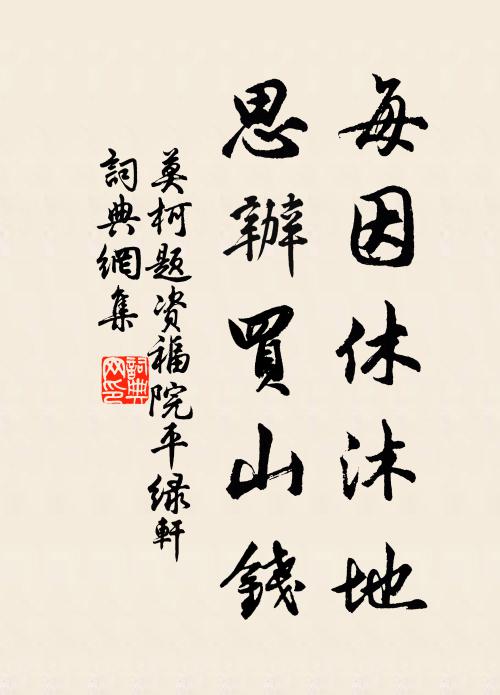 每因休沐地
思辦買山錢
莫柯题资福院平绿軒
詞典網集
詞典网印